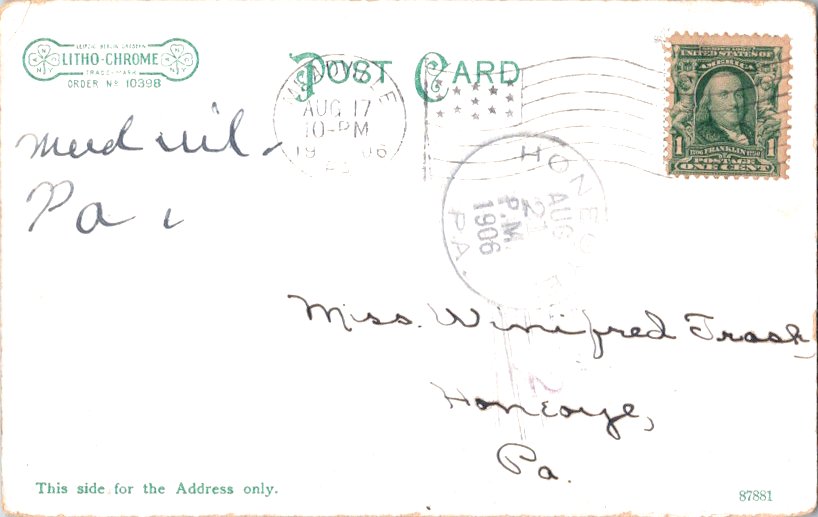 LEIPZIG BERLIN DRESDEN
LITHO-CHROME
TRADE MARK
ORDER Nº 10398
POST CARD
MEADVILLE
AUG 17
10-PM
1906
PA.
UNITED STATES OF
AMERICA
1 1706 FRANKLIN 1790 1
POSTAGE
ONE CENT
Meadvil.
Pa.
HONEOYE
AUG
21
P.M.
1906
PA.
Miss. Winifred Trask,
Honeoye,
Pa.
This side for the Address only.
87881